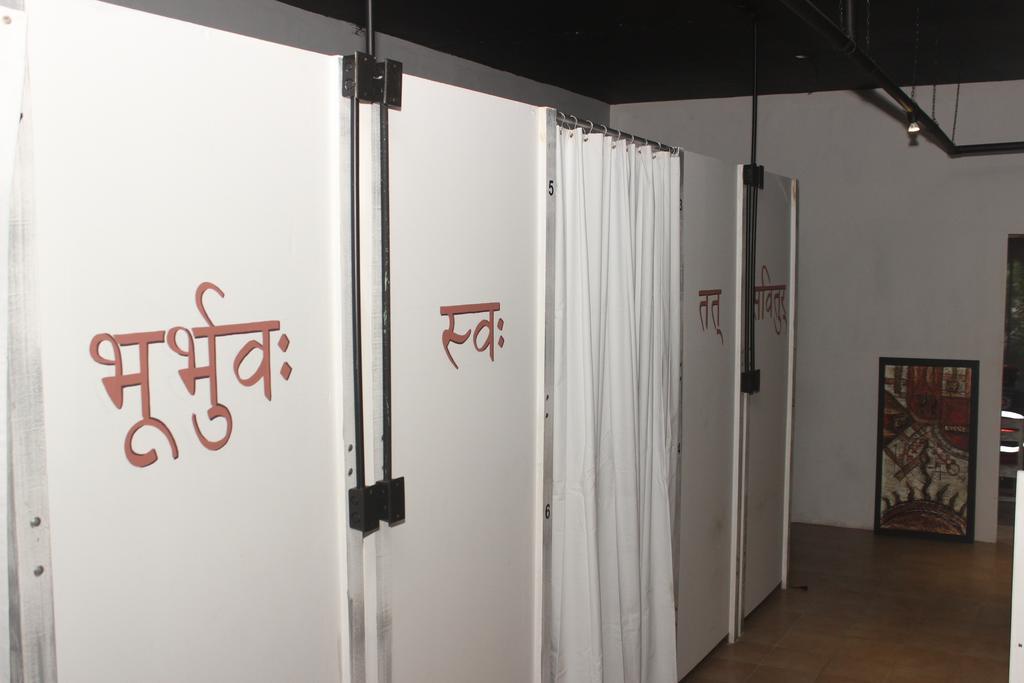 भूर्भुवः
स्वः
5
6
तत्
सवितुर्